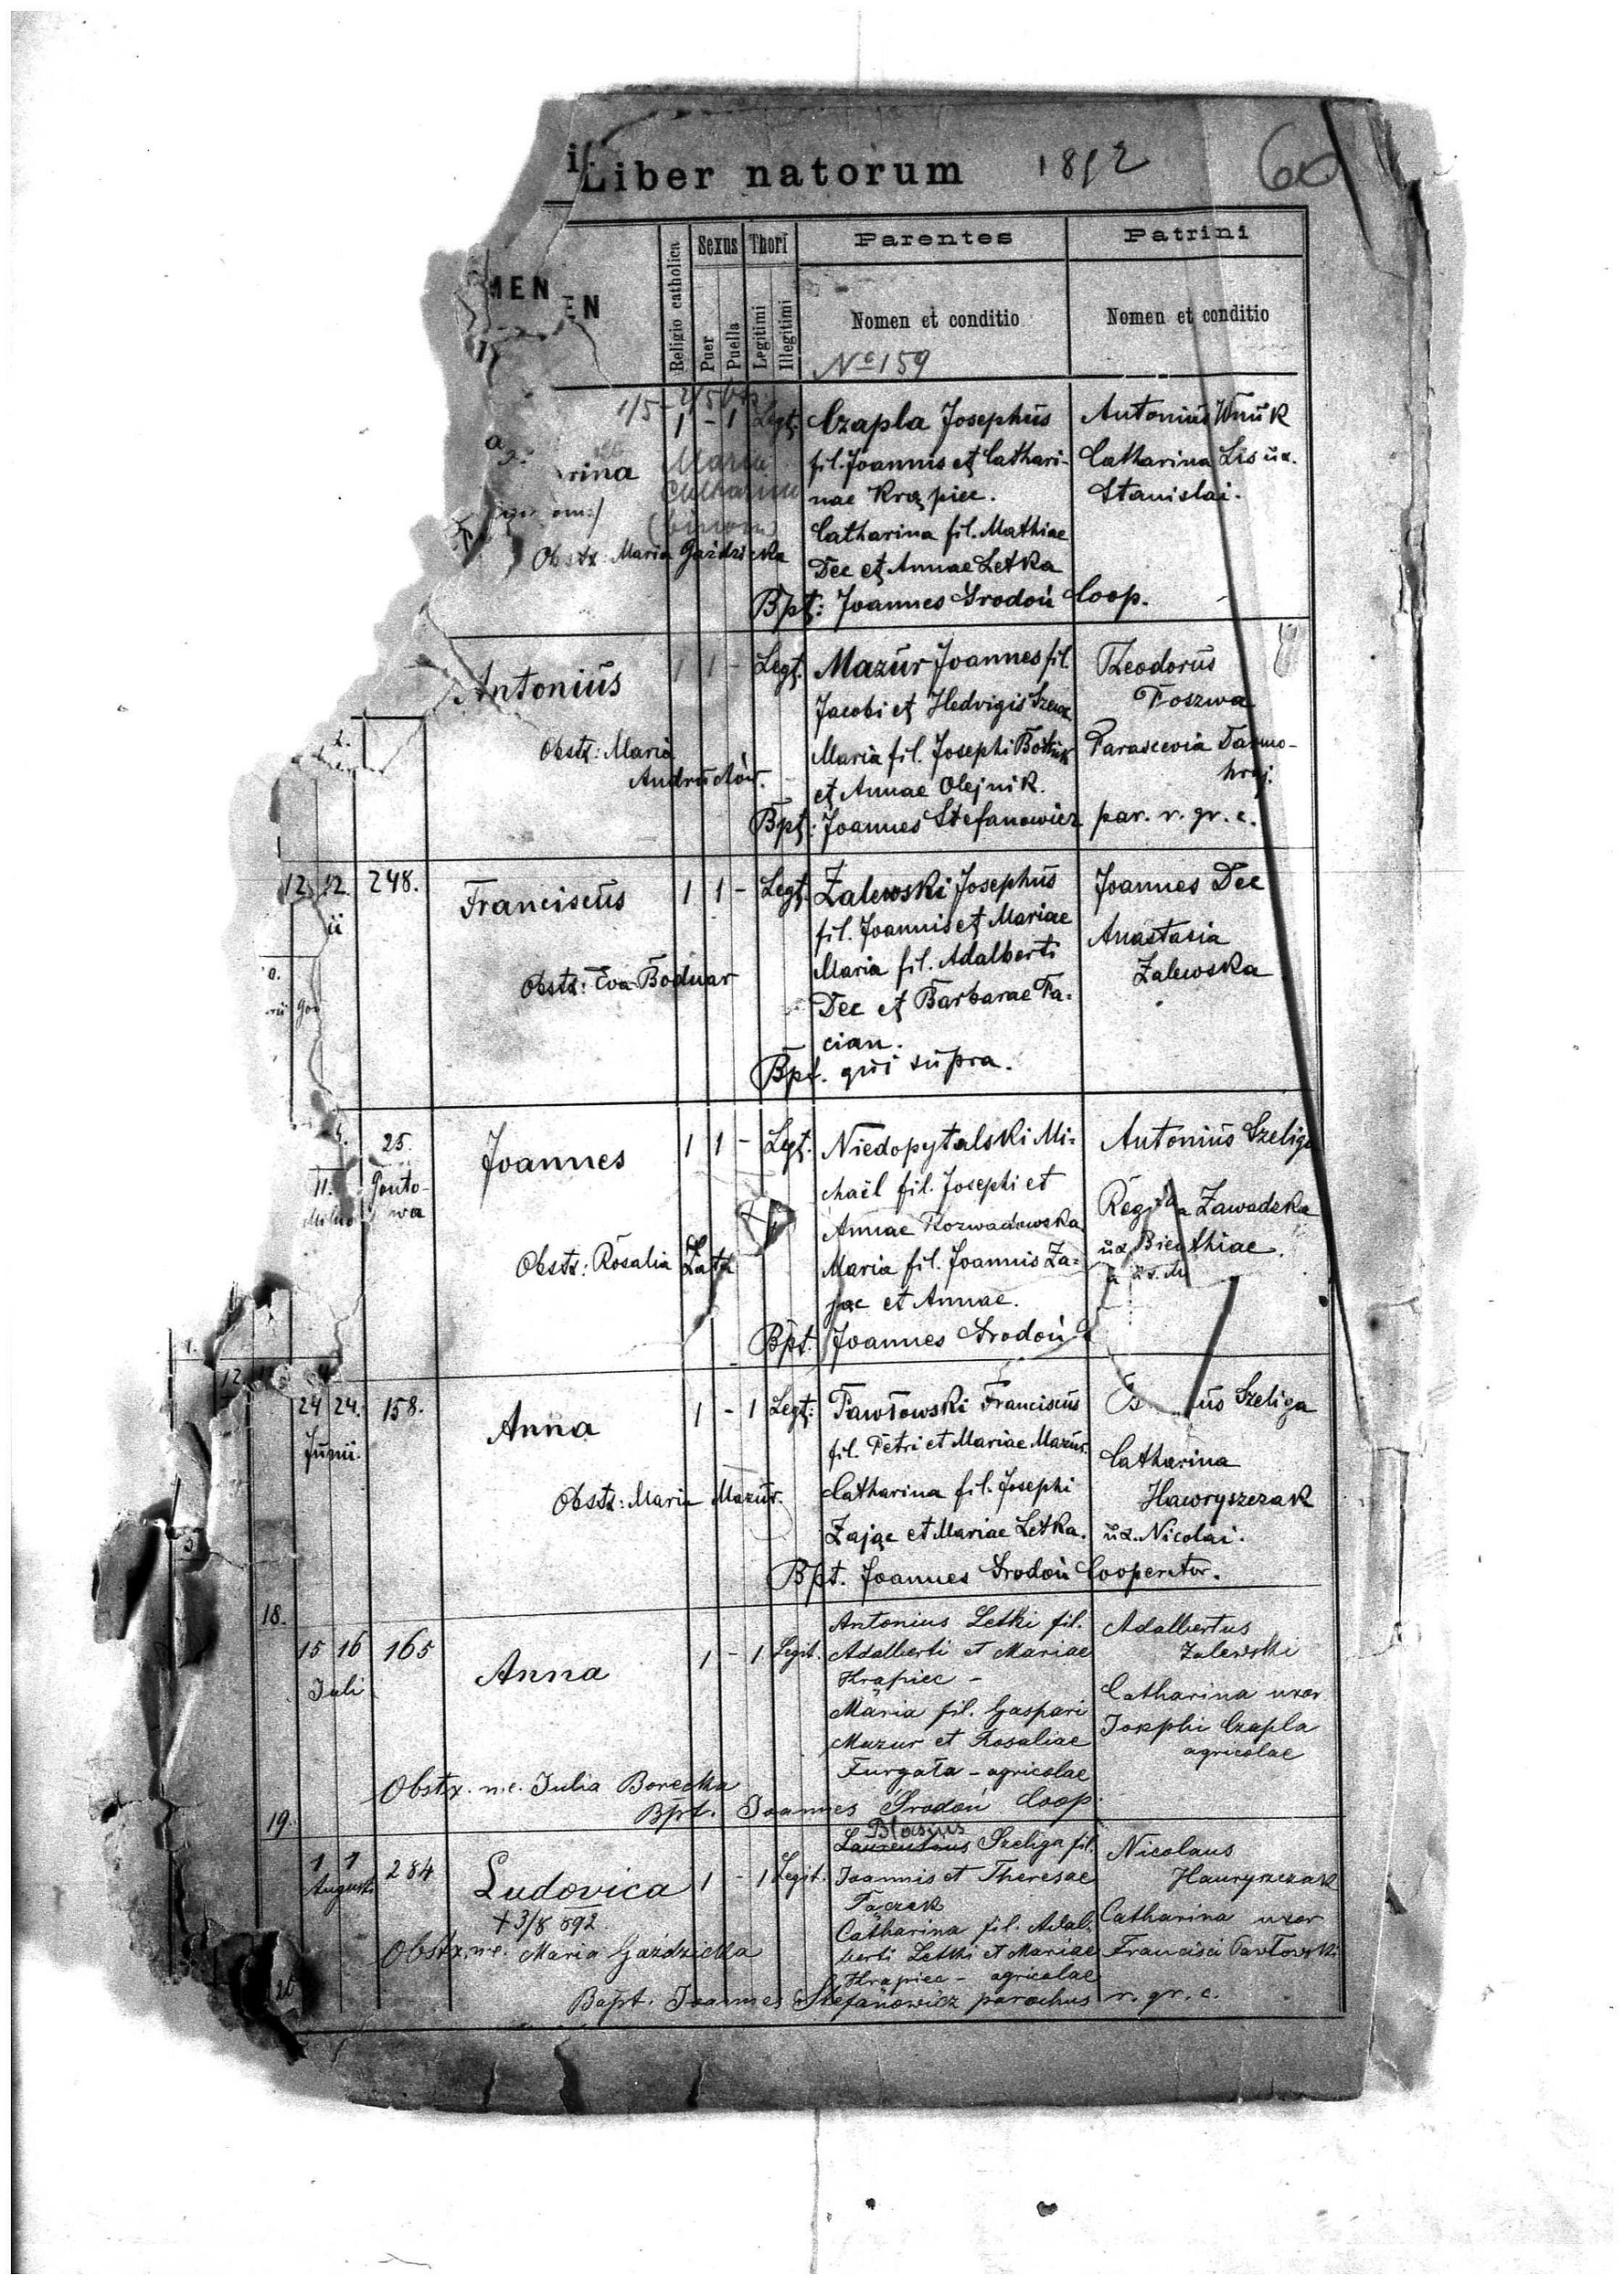 Liber natorum 1892 60
MEN EN
Religio catholica
Sexus
Thori
Puer
Puella
Legitimi
Illegitimi
Parentes
Patrini
Nomen et conditio
Nomen et conditio
No 159
1/5
rina
Maria
Catharina
(binom)
1 - 1 Legt.
Obstx: Maria Gaździcka
Czapla Josephus
fil. Joannis et Cathari-
nae Krąpiec.
Catharina fil. Mathiae
Dec et Annae Letka
Bpt: Joannes Srodoń Coop.
Antonius Wnuk
Catharina Lis ux.
Stanislai.
Antonius
1 1 - Legt.
Obstx: Maria
Andruchów.
Mazur Joannes fil.
Jacobi et Hedvigis
Maria fil. Josephi
et Annae Olejnik.
Bpt: Joannes Stefanowicz par. r. gr. c.
Teodorus
Poszwa
Parascevia Tarno-
12 12 248.
ii
Franciscus
1 1 - Legt.
Obstx: Eva Bodnar
Zalewski Josephus
fil. Joannis et Mariae
Maria fil. Adalberti
Dec et Barbarae Fa-
cian.
Bpt. qui supra.
Joannes Dec
Anastasia
Zalewska
25.
II. Gonto-
Milno wa
Joannes
1 1 - Legt.
Obstx: Rosalia Łata
Niedopytalski Mi-
chaël fil. Josephi et
Annae Rozwadowska
Maria fil. Joannis Za-
jąc et Annae.
Bpt. Joannes Srodoń
Antonius Szeliga
Regina Zawadzka
ux.
24 24. 158.
Junii.
Anna
1 - 1 Legt:
Obstx: Maria Mazur.
Pawłowski Franciscus
fil. Petri et Mariae Mazur.
Catharina fil. Josephi
Zając et Mariae Letka.
Bpt. Joannes Srodoń Cooperator.
us Szeliga
Catharina
Hawryszczak
ux. Nicolai.
18.
15 16 165
Juli
Anna
1 - 1 Legit.
Antonius Letki fil.
Adalberti et Mariae
Krąpiec -
Maria fil. Gaspari
Mazur et Rosaliae
Furgała - agricolae
Obstx. n.e. Julia Borecka
Bpt. Joannes Srodoń Coop.
Adalbertus
Zalewski
Catharina uxor
Josephi Czapla
agricolae
19.
1 1 284
Augusti
Ludovica
+ 3/8 892.
1 - 1 Legit.
Blasius
Laurentius Szeliga fil.
Joannis et Theresae
Pączek
Catharina fil. Adal-
berti Letki et Mariae
Krąpiec - agricolae
Obstx. n.e. Maria Gaździcka
Bapt. Joannes Stefanowicz parochus r. gr. c.
Nicolaus
Hawryszczak
Catharina uxor
Francisci Pawłowski
20